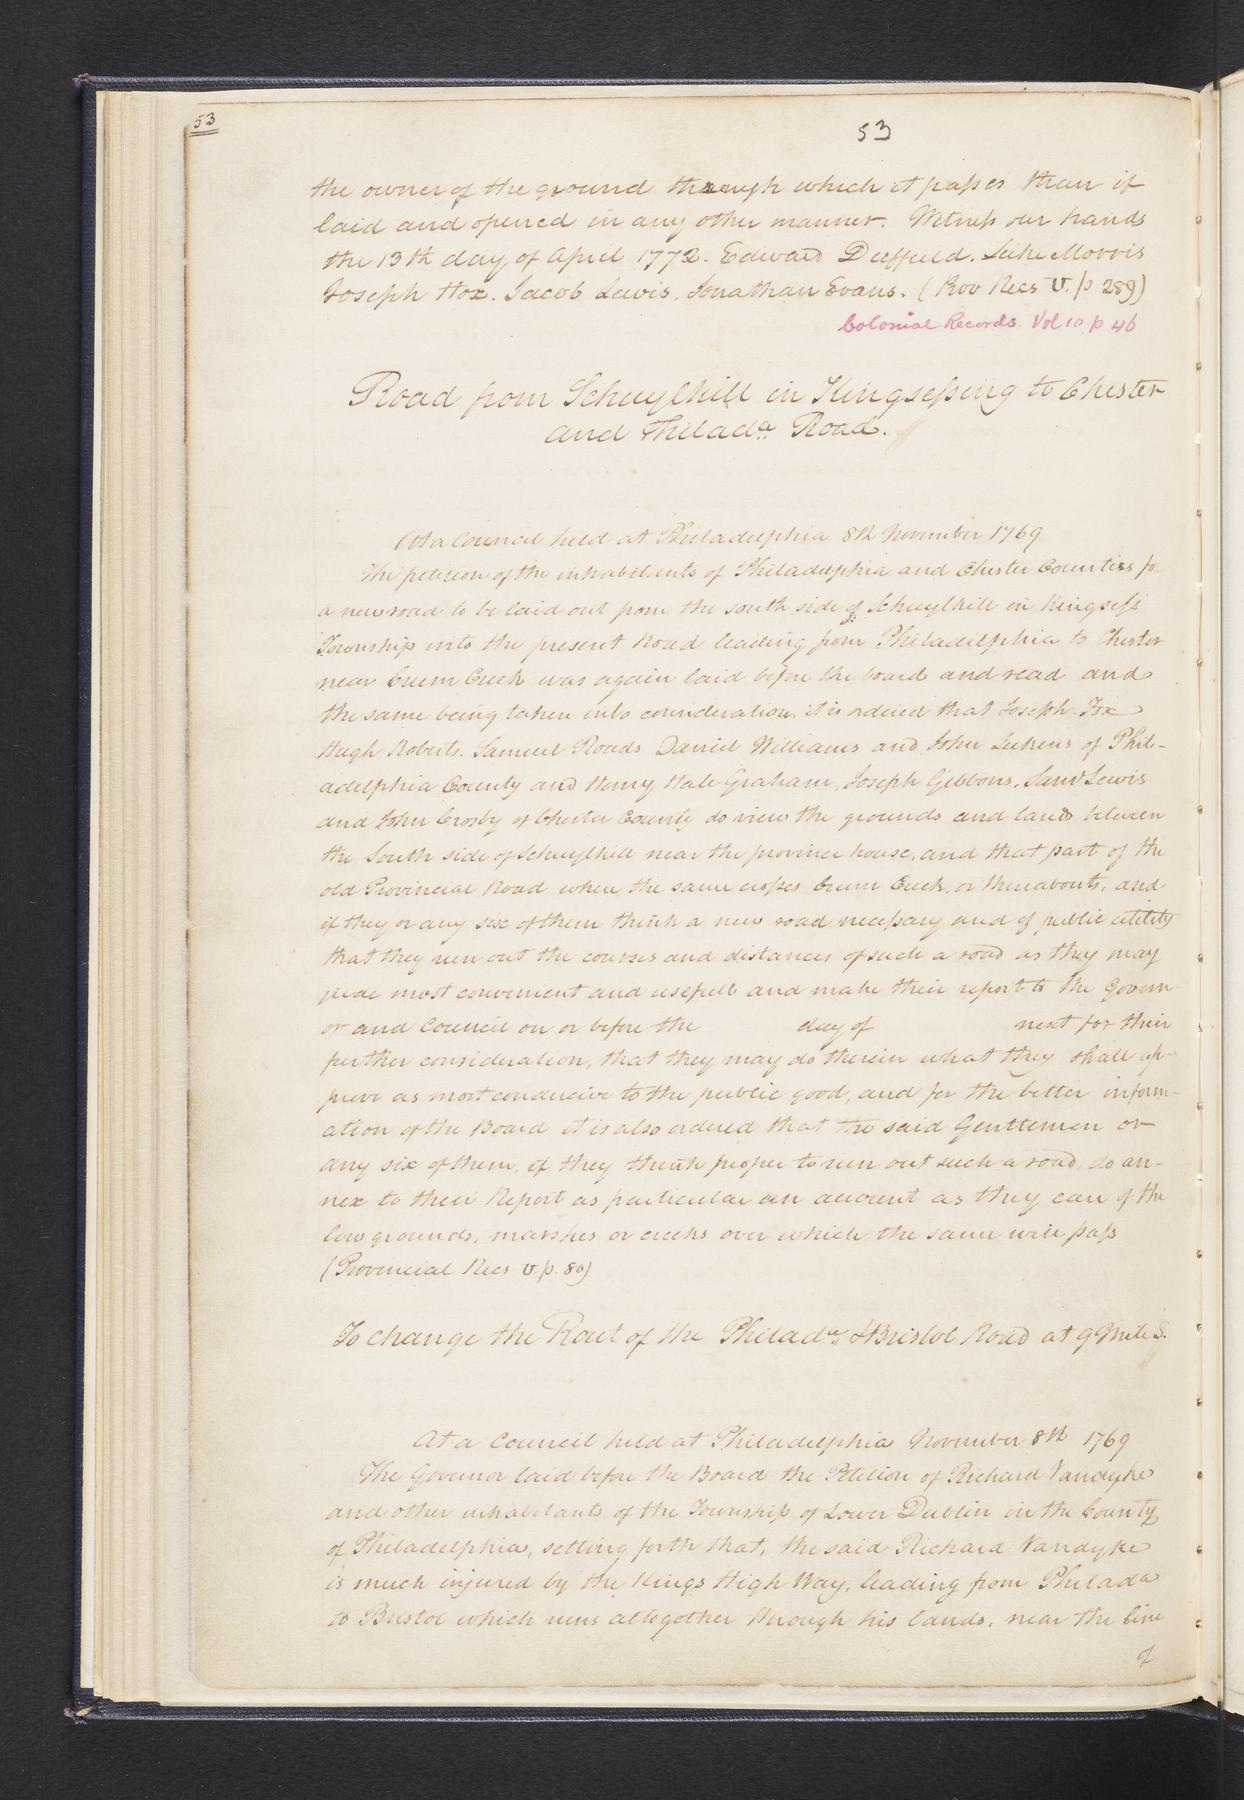 53
53
the owner of the ground through which it passes than if
laid and opened in any other manner. Witness our hands
the 13th day of April 1772. Edward Duffield. Luke Morris
Joseph Hox. Jacob Lewis. Jonathan Evans. (Prov Recs V. p 289)
Colonial Records. Vol 10 p 46
Road from Schuylkill in Kingsessing to Chester
and Philada. Road.
At a Council held at Philadelphia 8th November 1769
The petition of the inhabitants of Philadelphia and Chester Counties for
a new road to be laid out from the south side of Schuylkill in Kingsess
Township into the present Road leading from Philadelphia to Chester
near Crum Creek was again laid before the board and read and
the same being taken into consideration, it is ordered that Joseph Fox
Hugh Roberts. Samuel Roads Daniel Williams and John Lukens of Phil-
adelphia County and Henry Hale Graham, Joseph Gibbons, Saml Lewis
and John Crosby of Chester County do view the grounds and lands between
the South side of Schuylkill near the province house, and that part of the
old Provincial Road where the same crosses Crum Creek, or thereabouts, and
if they or any six of them think a new road necessary and of public utility
that they run out the courses and distances of such a road as they may
judge most convenient and usefull and make their report to the Govern
or and Council on or before the day of next for their
further consideration, that they may do therein what they shall ap-
prove as most conducive to the public good, and for the better inform-
ation of the Board it is also ordered that the said Gentlemen or
any six of them, if they think proper to run out such a road, do an-
nex to their Report as particular an account as they can of the
low grounds, marshes or creeks over which the same will pass
(Provincial Recs V. p. 80)
To change the Rout of the Philada. & Bristol Road at 9 Mile S.
At a Council held at Philadelphia November 8th 1769
The Governor laid before the Board the Petition of Richard Vandyke
and other inhabitants of the Township of Lower Dublin in the County
of Philadelphia, setting forth that, the said Richard Vandyke
is much injured by the Kings High Way, leading from Philada
to Bristol which runs altogether through his lands, near the line
of